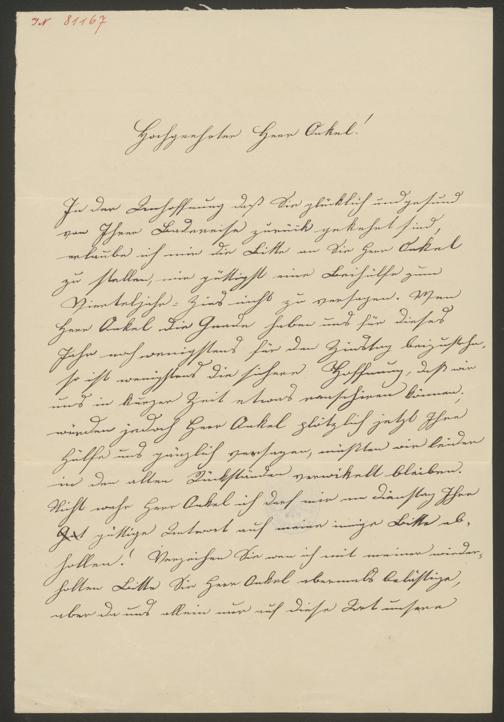 IN 81167
Hochgeehrter Herr Onkel!
In der Anhoffnung daß Sie glücklich und gesund
von Ihrer Badereise zurück gekehrt sind,
erlaube ich mir die Bitte an Sie Herr Onkel
zu stellen, mir gütigst eine Beihülfe zum
Vierteljahr-Zins nicht zu versagen. Wen
Herr Onkel die Gnade haben uns für dieses
Jahr noch wenigstens für den Zinstag beizustehn,
so ist wenigstens die sichere Hoffnung, daß wir
uns in kurzer Zeit etwas rangieren können,
würden jedoch Herr Onkel plötzlich jetzt Ihre
Hülfe uns gänzlich versagen, müßten wir leider
in den alten Rückständen verwikelt bleiben.
Nicht wahr Herr Onkel ich darf mir am Dienstag Ihre
gütige Antwort auf meine innige Bitte ab-
hollen! Verzeihen Sie wen ich mit meiner wieder-
holten Bitte Sie Herr Onkel abermals belästige,
aber da uns allein nur auf diese Art unsere